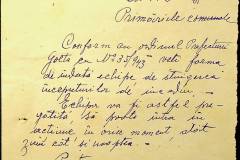 Primăriile comunale
Conform cu ordinul Prefecturii
Gorj cu No 235/943 veți forma
de îndată echipe de stingerea
începuturilor de incendiu.
Echipa va fi astfel pre
gătită, să poată intra în
acțiune în orice moment, atât
ziua cât și noaptea.